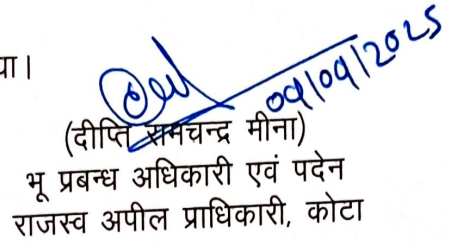 या।
09/09/2025
(दीप्ति रामचन्द्र मीना)
भू प्रबन्ध अधिकारी एवं पदेन
राजस्व अपील प्राधिकारी, कोटा